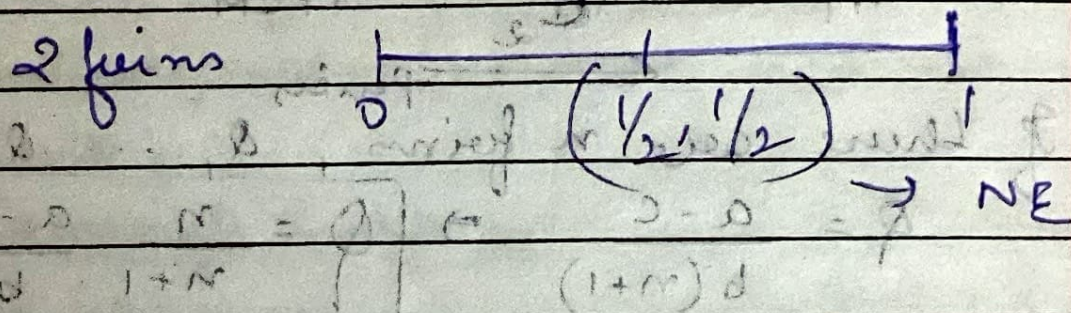 2 firms
0 (1/2, 1/2) 1
→ NE